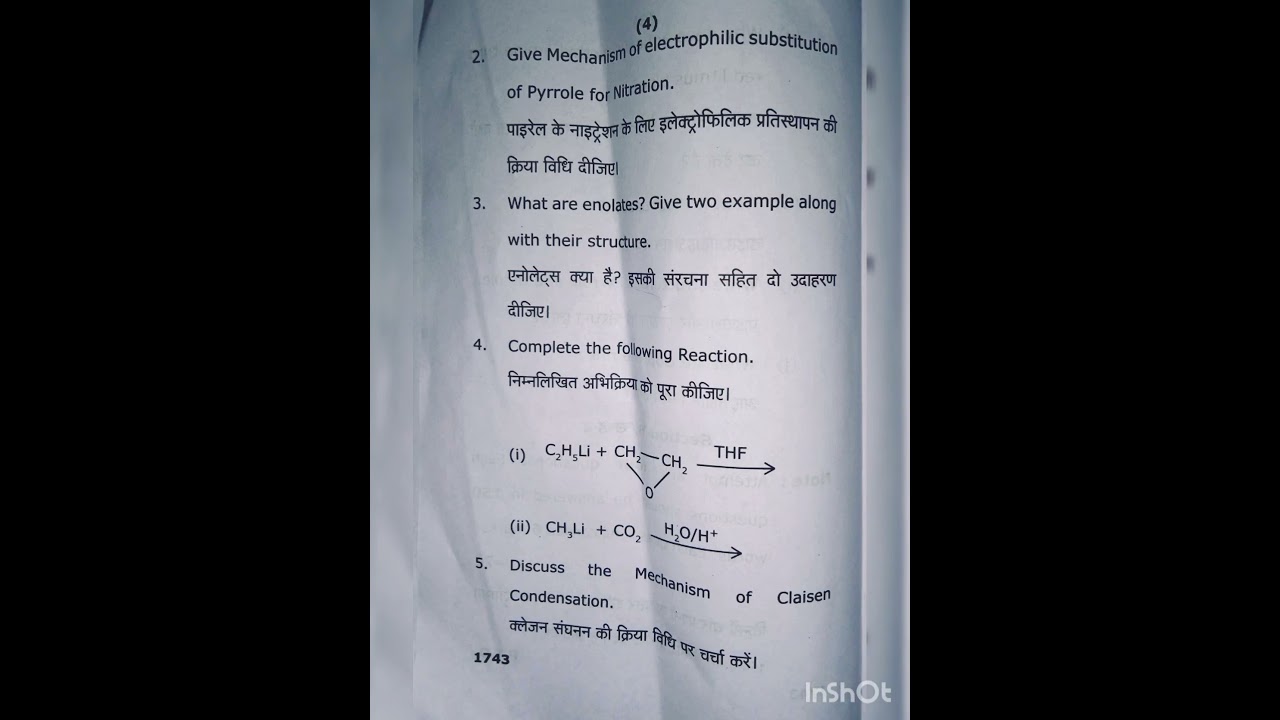 (4)
2. Give Mechanism of electrophilic substitution
of Pyrrole for Nitration.
पाइरेल के नाइट्रेशन के लिए इलेक्ट्रोफिलिक प्रतिस्थापन की
क्रिया विधि दीजिए।
3. What are enolates? Give two example along
with their structure.
एनोलेट्स क्या है? इसकी संरचना सहित दो उदाहरण
दीजिए।
4. Complete the following Reaction.
निम्नलिखित अभिक्रिया को पूरा कीजिए।
(i) C₂H₅Li + CH₂—CH₂ THF
O
(ii) CH₃Li + CO₂ H₂O/H⁺
5. Discuss the Mechanism of Claisen
Condensation.
क्लेजन संघनन की क्रिया विधि पर चर्चा करें।
1743
InShOt